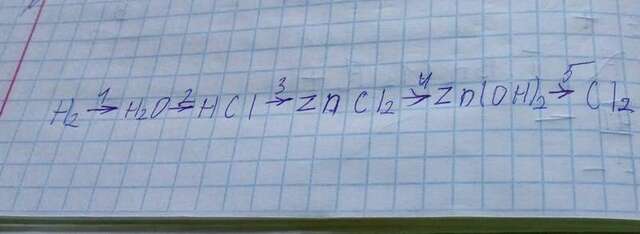 H₂ →1 H₂O →2 HCl →3 ZnCl₂ →4 Zn(OH)₂ →5 Cl₂